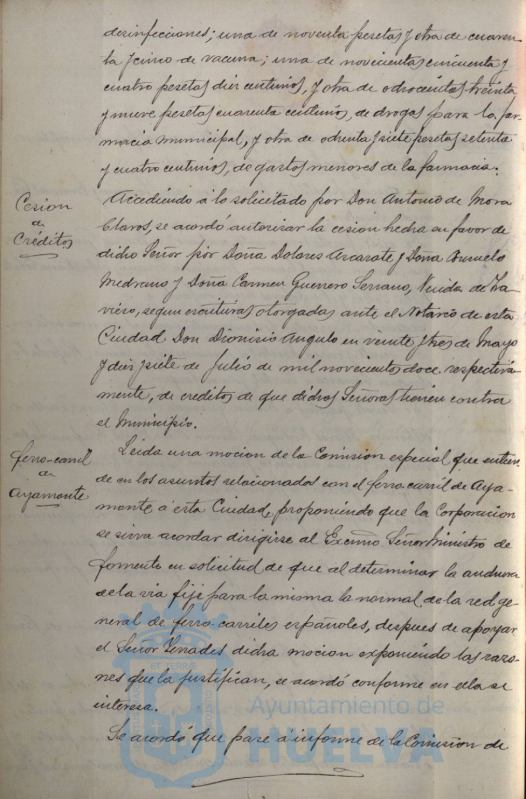 desinfecciones; una de noventa pesetas y otra de cuaren-
ta y cinco de vacuna; una de novecientas cincuenta y
cuatro pesetas diez centimos, y otra de ochocientas treinta
y nueve pesetas cuarenta centimos, de drogas para la far-
macia municipal, y otra de ochenta y siete pesetas setenta
y cuatro centimos, de gastos menores de la farmacia.
Cesion
de
Créditos
Accediendo á lo solicitado por Don Antonio de Mora
Claros, se acordó autorizar la cesion hecha en favor de
dicho Señor por Doña Dolores Azcarate y Doña Consuelo
Medrano y Doña Carmen Guerrero Serrano, Viuda de
segun escrituras otorgadas ante el Notario de esta
Ciudad Don Dionisio Angulo en veinte y tres de Mayo
y diez y siete de Julio de mil novecientos doce respectiva-
mente, de creditos de que dichas Señoras tienen contra
el Municipio.
ferro-carril
de
Ayamonte
Leida una mocion de la Comision especial que entien-
de en los asuntos relacionados con el ferro-carril de Aya-
monte á esta Ciudad, proponiendo que la Corporacion
se sirva acordar dirigirse al Excmo Señor Ministro de
fomento en solicitud de que al determinar la anchura
de la via fije para la misma la normal de la red ge-
neral de ferro-carriles españoles, despues de apoyar
el Señor dicha mocion exponiendo las razo-
nes que la justifican, se acordó conforme en ella se
interesa.
Se acordó que pase á informe de la Comision de
Ayuntamiento de
HUELVA